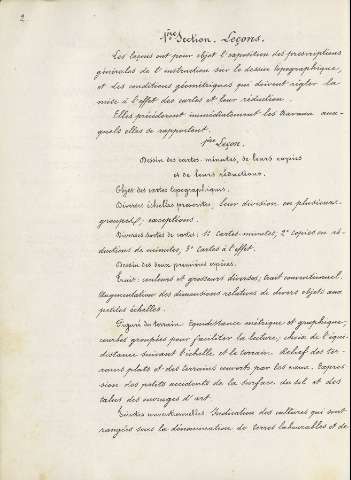 2
1ère Section. Leçons.
Les leçons ont pour objet l'exposition des prescriptions
générales de l'instruction sur le dessin topographique,
et des conditions géométriques qui doivent régler la
mise à l'effet des cartes et leur réduction.
Elles précéderont immédiatement les travaux aux-
quels elles se rapportent.
1ère Leçon.
Dessin des cartes minutes, de leurs copies
et de leurs réductions.
Objet des cartes topographiques.
Diverses échelles prescrites, leur division en plusieurs
groupes, exceptions.
Diverses sortes de cartes: 1° Cartes-minutes, 2° copies ou ré-
ductions de minutes, 3° cartes à l'effet.
Dessin des deux premières espèces.
Trait: couleurs et grosseurs diverses, trait conventionnel.
Augmentation des dimensions relatives de divers objets aux
petites échelles.
Figuré du terrain. Equidistance métrique et graphique,
courbes groupées pour faciliter la lecture, choix de l'équi-
distance suivant l'échelle et le terrain. Relief des ter-
rains plats et des terrains couverts par les eaux. Expres-
sion des petits accidents de la surface du sol et des
talus des ouvrages d'art.
Teintes conventionnelles. Indication des cultures qui sont
rangées sous la dénomination de terres labourables et de